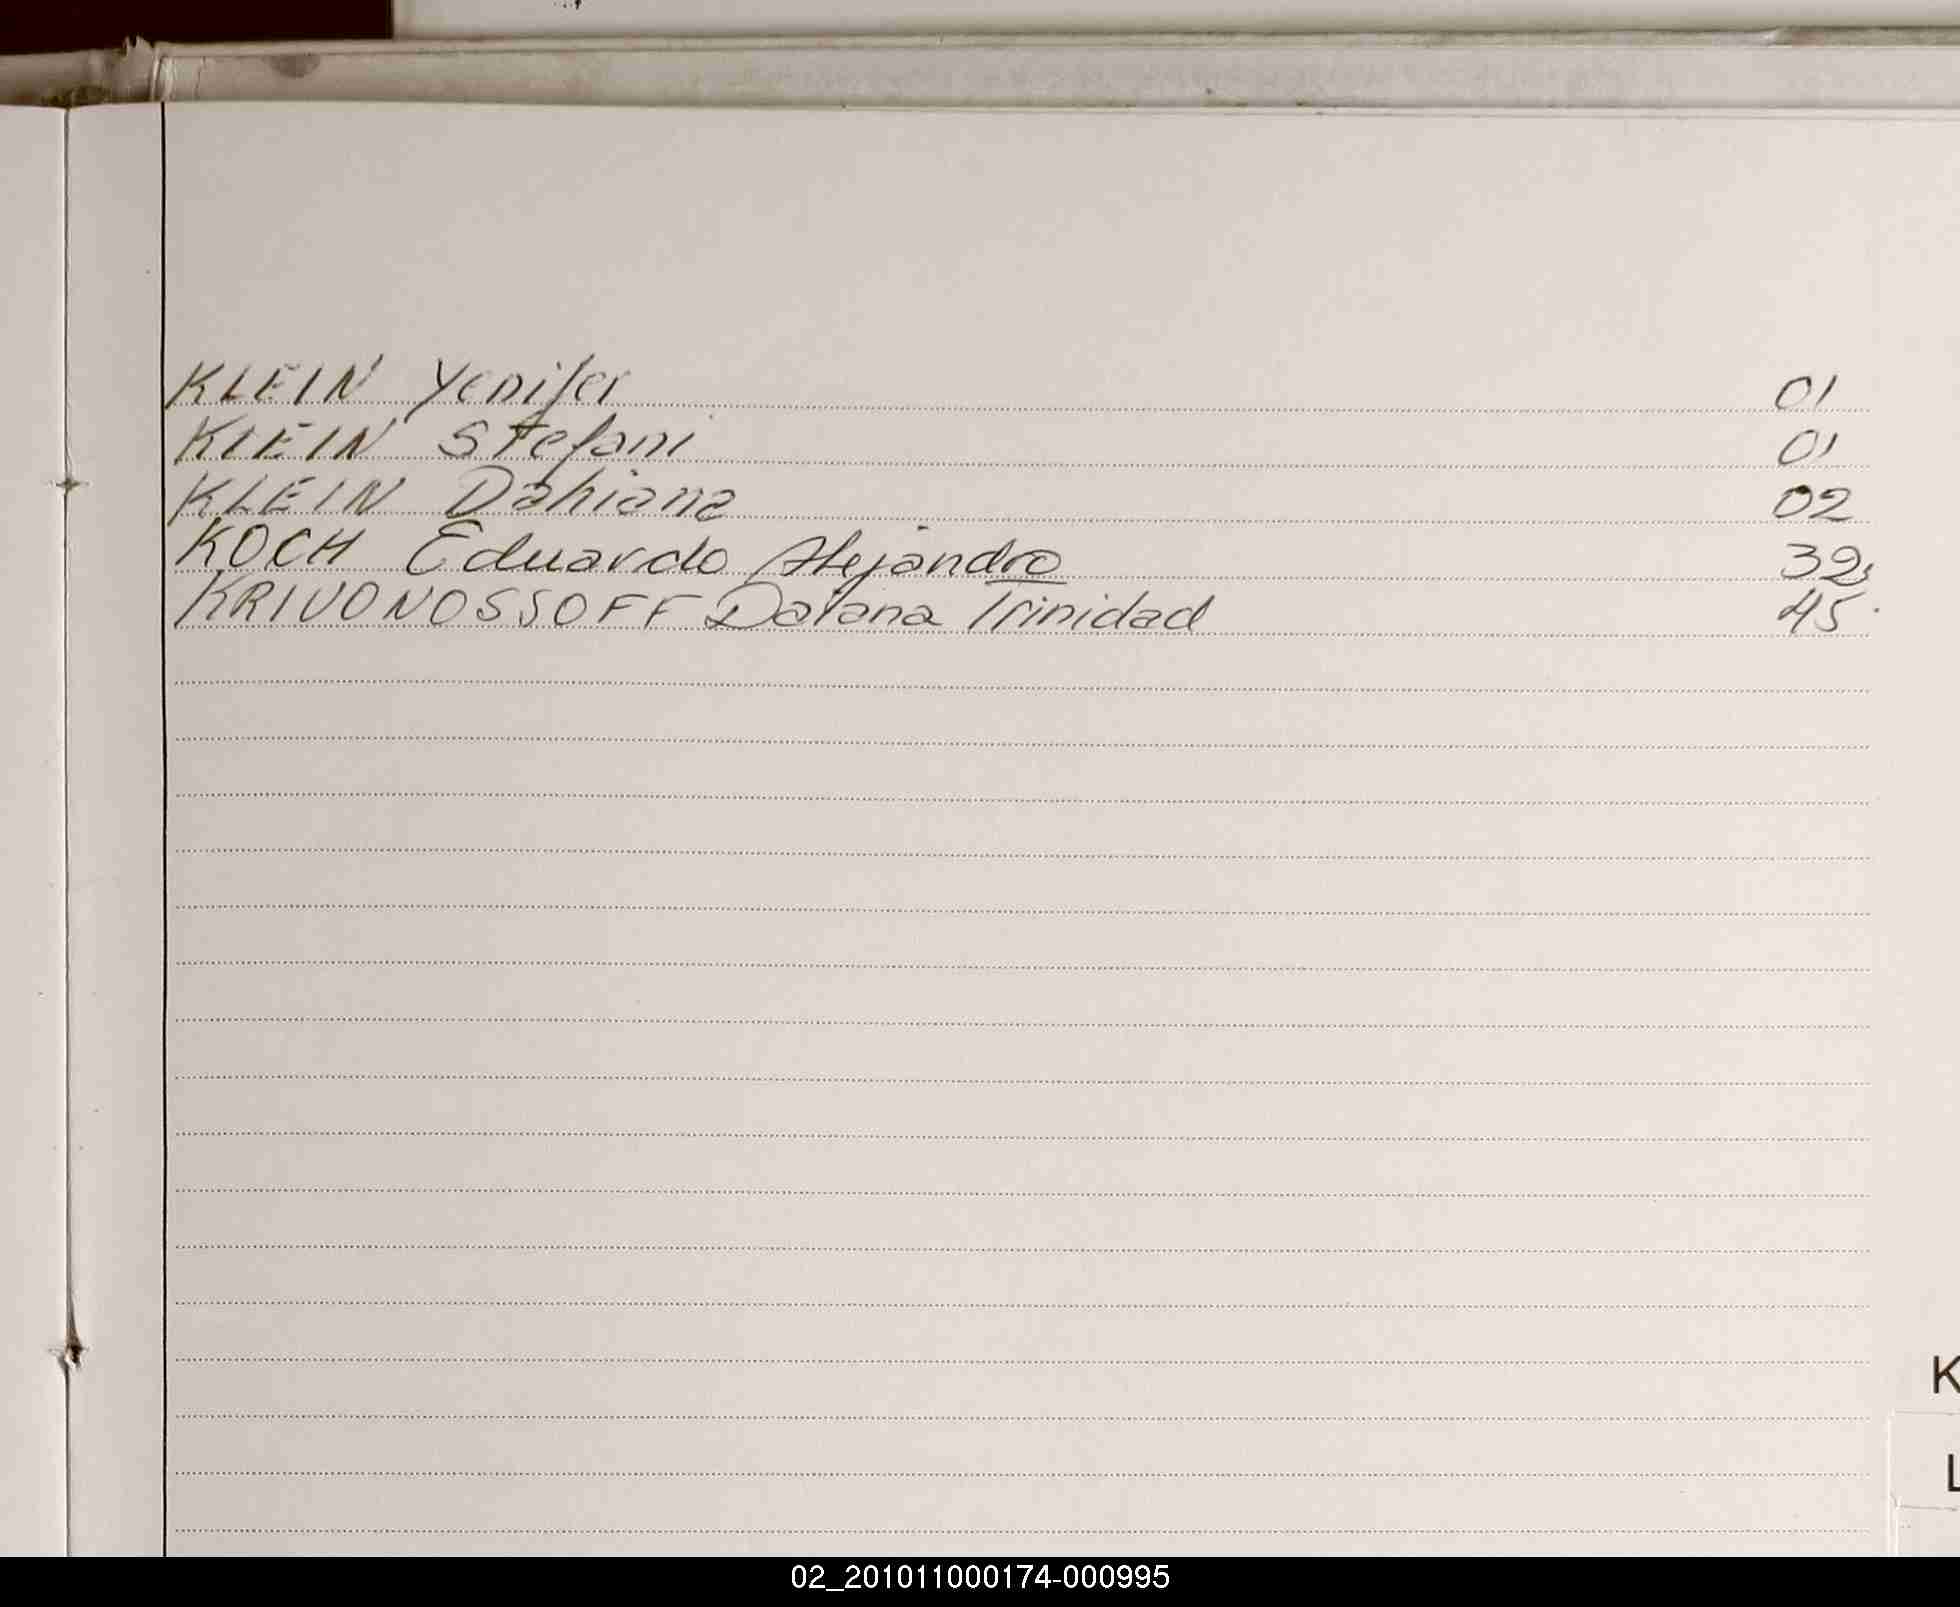 KLEIN Yenifer 01
KLEIN Stefani 01
KLEIN Dahiana 02
KOCH Eduardo Alejandro 39
KRIVONOSSOFF Daiana Trinidad 45
K
L
02_201011000174-000995